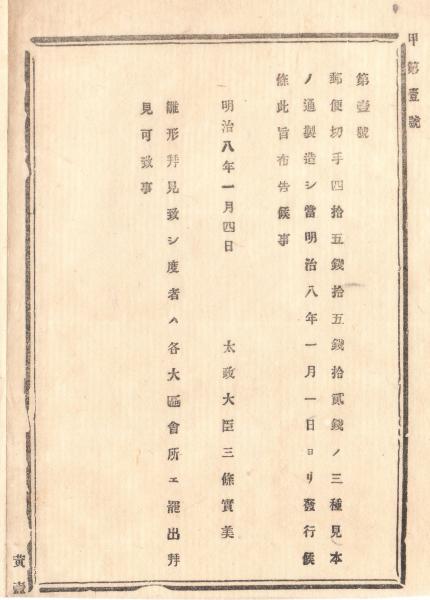 甲第壹號
第壹號
郵便切手四拾五錢拾五錢拾貳錢ノ三種見本
ノ通製造シ當明治八年一月一日ヨリ發行候
條此旨布告候事
明治八年一月四日
太政大臣三條實美
雛形拜見致シ度者ハ各大區會所エ罷出拜
見可致事
黄壹